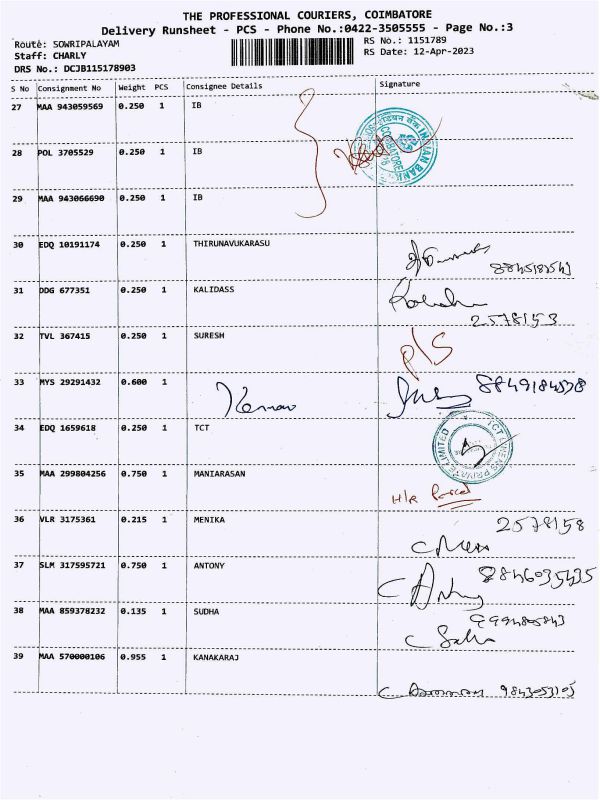 THE PROFESSIONAL COURIERS, COIMBATORE
Delivery Runsheet - PCS - Phone No.:0422-3505555 - Page No.:3
Route: SOWRIPALAYAM
RS No.: 1151789
Staff: CHARLY
RS Date: 12-Apr-2023
DRS No.: DCJB115178903
S No Consignment No Weight PCS Consignee Details Signature
27 MAA 943059569 0.250 1 IB
28 POL 3705529 0.250 1 IB
29 MAA 943066690 0.250 1 IB
30 EDQ 10191174 0.250 1 THIRUNAVUKARASU
31 DDG 677351 0.250 1 KALIDASS
2578153
32 TVL 367415 0.250 1 SURESH
P/S
33 MYS 29291432 0.600 1
8849184538
34 EDQ 1659618 0.250 1 TCT
35 MAA 299804256 0.750 1 MANIARASAN
H/R Parcel
36 VLR 3175361 0.215 1 MENIKA
2578158
37 SLM 317595721 0.750 1 ANTONY
8846035435
38 MAA 859378232 0.135 1 SUDHA
39 MAA 570000106 0.955 1 KANAKARAJ
INDIAN BANK
COIMBATORE
PRIVATE LIMITED